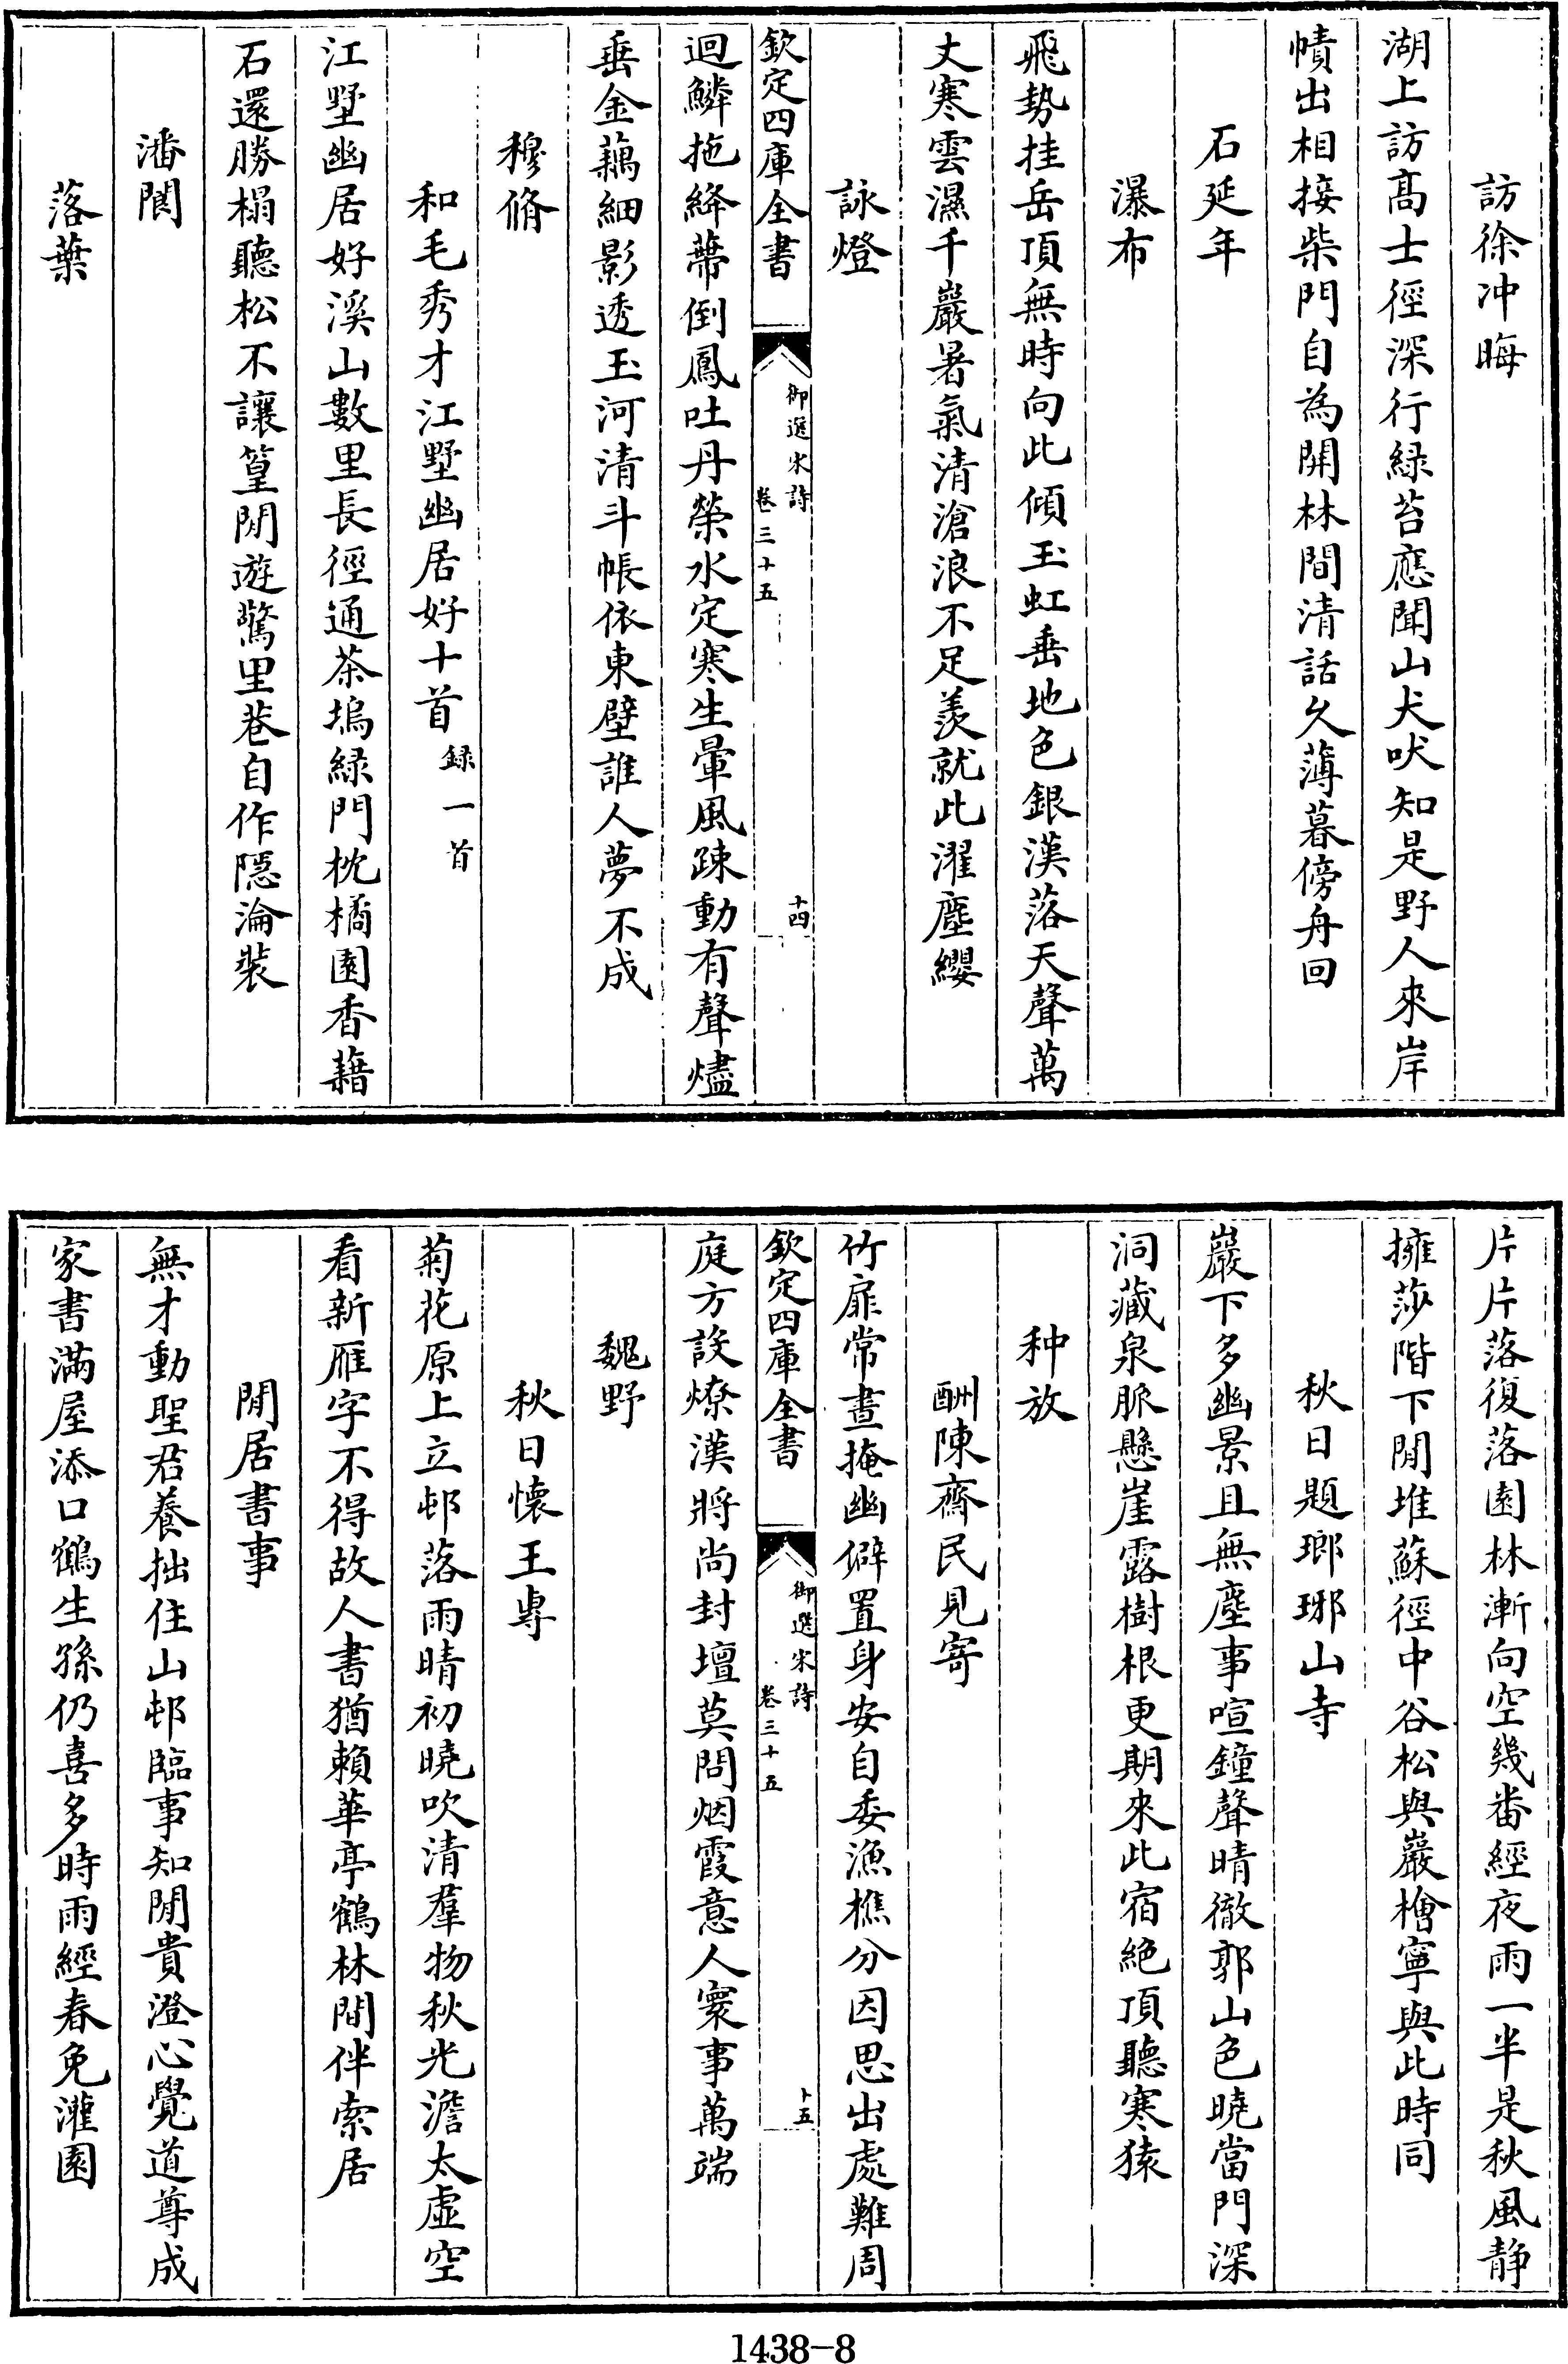 訪徐冲晦
湖上訪髙士徑深行緑苔應聞山犬吠知是野人來岸
幘出相接柴門自為開林間清話久薄暮傍舟回
石延年
瀑布
飛勢挂岳頂無時向此傾玉虹垂地色銀漢落天聲萬
丈寒雲濕千巖暑氣清滄浪不足羨就此濯塵纓
詠燈
欽定四庫全書
御選宋詩
卷三十五
十四
迴鱗拖絳蔕倒鳳吐丹榮水定寒生暈風踈動有聲燼
垂金藕細影透玉河清斗帳依東壁誰人夢不成
穆脩
和毛秀才江墅幽居好十首録一首
江墅幽居好溪山數里長徑通茶塢緑門枕橘園香藉
石還勝榻聽松不讓篁閒遊驚里巷自作隱淪裝
潘閬
落葉
片片落復落園林漸向空幾畨經夜雨一半是秋風静
擁莎階下閒堆蘇徑中谷松與巖檜寧與此時同
秋日題瑯琊山寺
巖下多幽景且無塵事喧鐘聲晴徹郭山色曉當門深
洞藏泉脈懸崖露樹根更期來此宿絶頂聽寒猿
种放
酬陳齋民見寄
竹扉常晝掩幽僻置身安自委漁樵分因思出處難周
欽定四庫全書
御選宋詩
卷三十五
十五
庭方設燎漢將尚封壇莫問烟霞意人寰事萬端
魏野
秋日懷王專
菊花原上立邨落雨晴初曉吹清羣物秋光澹太虚空
看新雁字不得故人書猶賴華亭鶴林間伴索居
閒居書事
無才動聖君養拙住山邨臨事知閒貴澄心覺道尊成
家書滿屋添口鶴生孫仍喜多時雨經春免灌園
1438-8